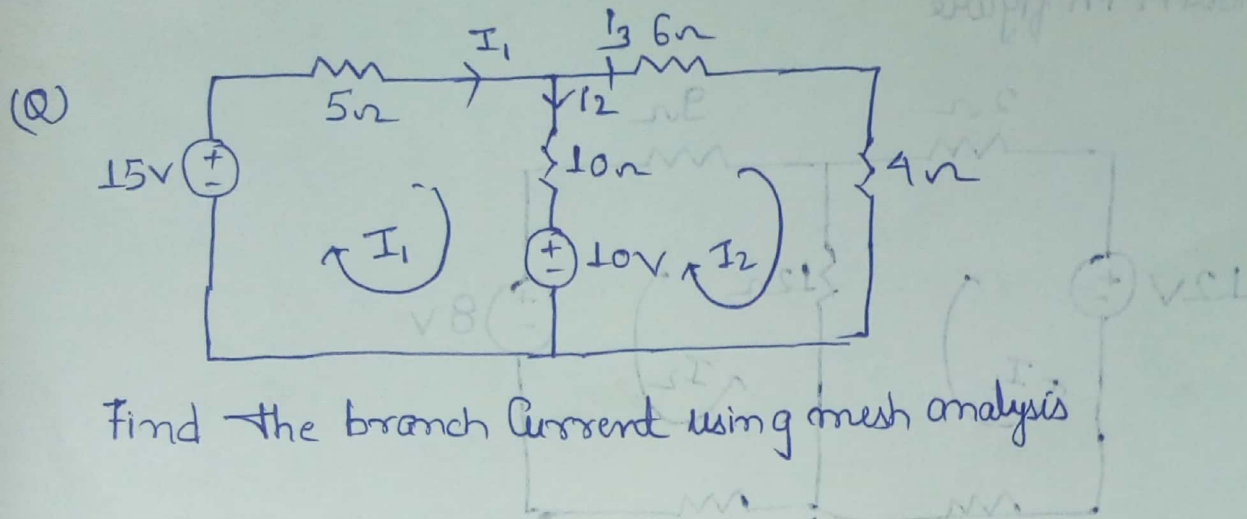 I₁ I₃ 6Ω
(Q) 5Ω I₂
15V + - 10Ω 4Ω
I₁ + - 10V I₂
Find the branch Current using mesh analysis